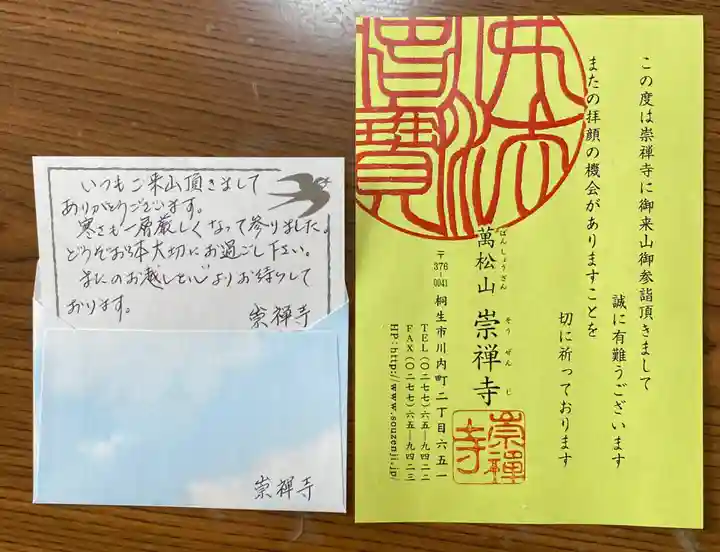 いつもご来山頂きまして
ありがとうございます。
寒さも一層厳しくなって参りました。
どうぞお体大切にお過ごし下さい。
またのお越しを心よりお待ちして
おります。
崇禅寺
崇禅寺
この度は崇禅寺に御来山御参詣頂きまして
誠に有難うございます
またの拝顔の機会がありますことを
切に祈っております
ばんしょうざん そうぜんじ
萬松山 崇禅寺
〒376-0041 桐生市川内町二丁目六五一
TEL(〇二七七)六五ー九四二二
FAX(〇二七七)六五ー九四二三
HP:http://www.souzenji.jp/
崇禅
寺